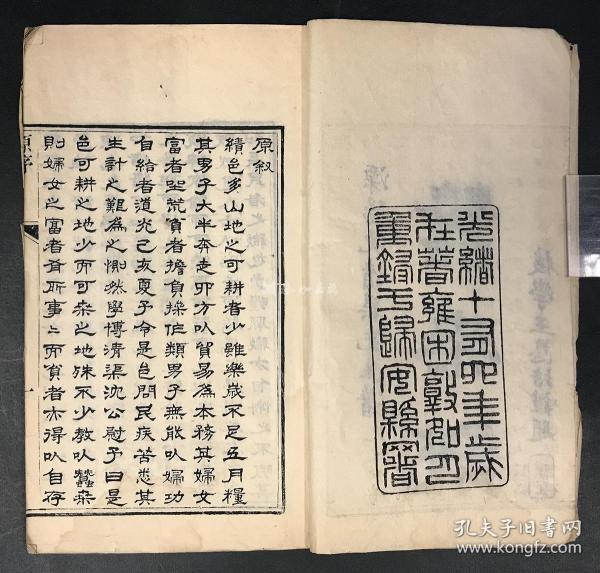 光緒十有四年歲
在著雍困敦如月
重鋟于歸安縣署
原叙
績邑多山地之可耕者少雖樂歲不足五月糧
其男子大半奔走四方以貿易為本務其婦女
富者坐荒貧者擔負操作類男子無能以婦功
自給者道光己亥夏予令是邑問民疾苦悉其
生計之難為之惻然學博清渠沈公慰予曰是
邑可耕之地少而可桑之地殊不少教以蠶桑
則婦女之富者有所事〻而貧者亦得以自存
一
孔夫子旧书网
www.kongfz.com